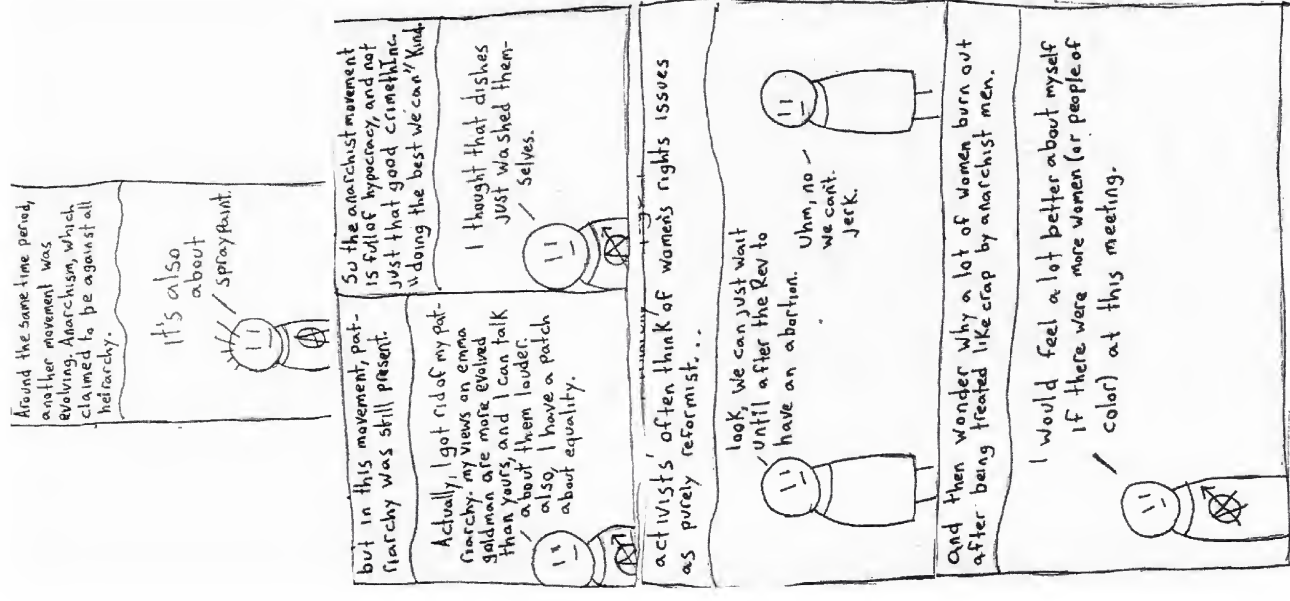 Around the same time period,
another movement was
evolving. Anarchism, which
claimed to be against all
heirarchy.
It's also
about
spraypaint.
but in this movement, pat-
riarchy was still present.
Actually, I got rid of my pat-
riarchy. my views on emma
goldman are more evolved
than yours, and I can talk
about them louder.
also, I have a patch
about equality.
So the anarchist movement
is full of hypocracy, and not
just that good crimethInc.
"doing the best we can" Kind.
I thought that dishes
just washed them-
selves.
activists' often think of women's rights issues
as purely reformist....
look, we can just wait
until after the Rev to
have an abortion.
Uhm, no
we can't.
jerk.
and then wonder why a lot of women burn out
after being treated like crap by anarchist men.
I would feel a lot better about myself
if there were more women (or people of
color) at this meeting.